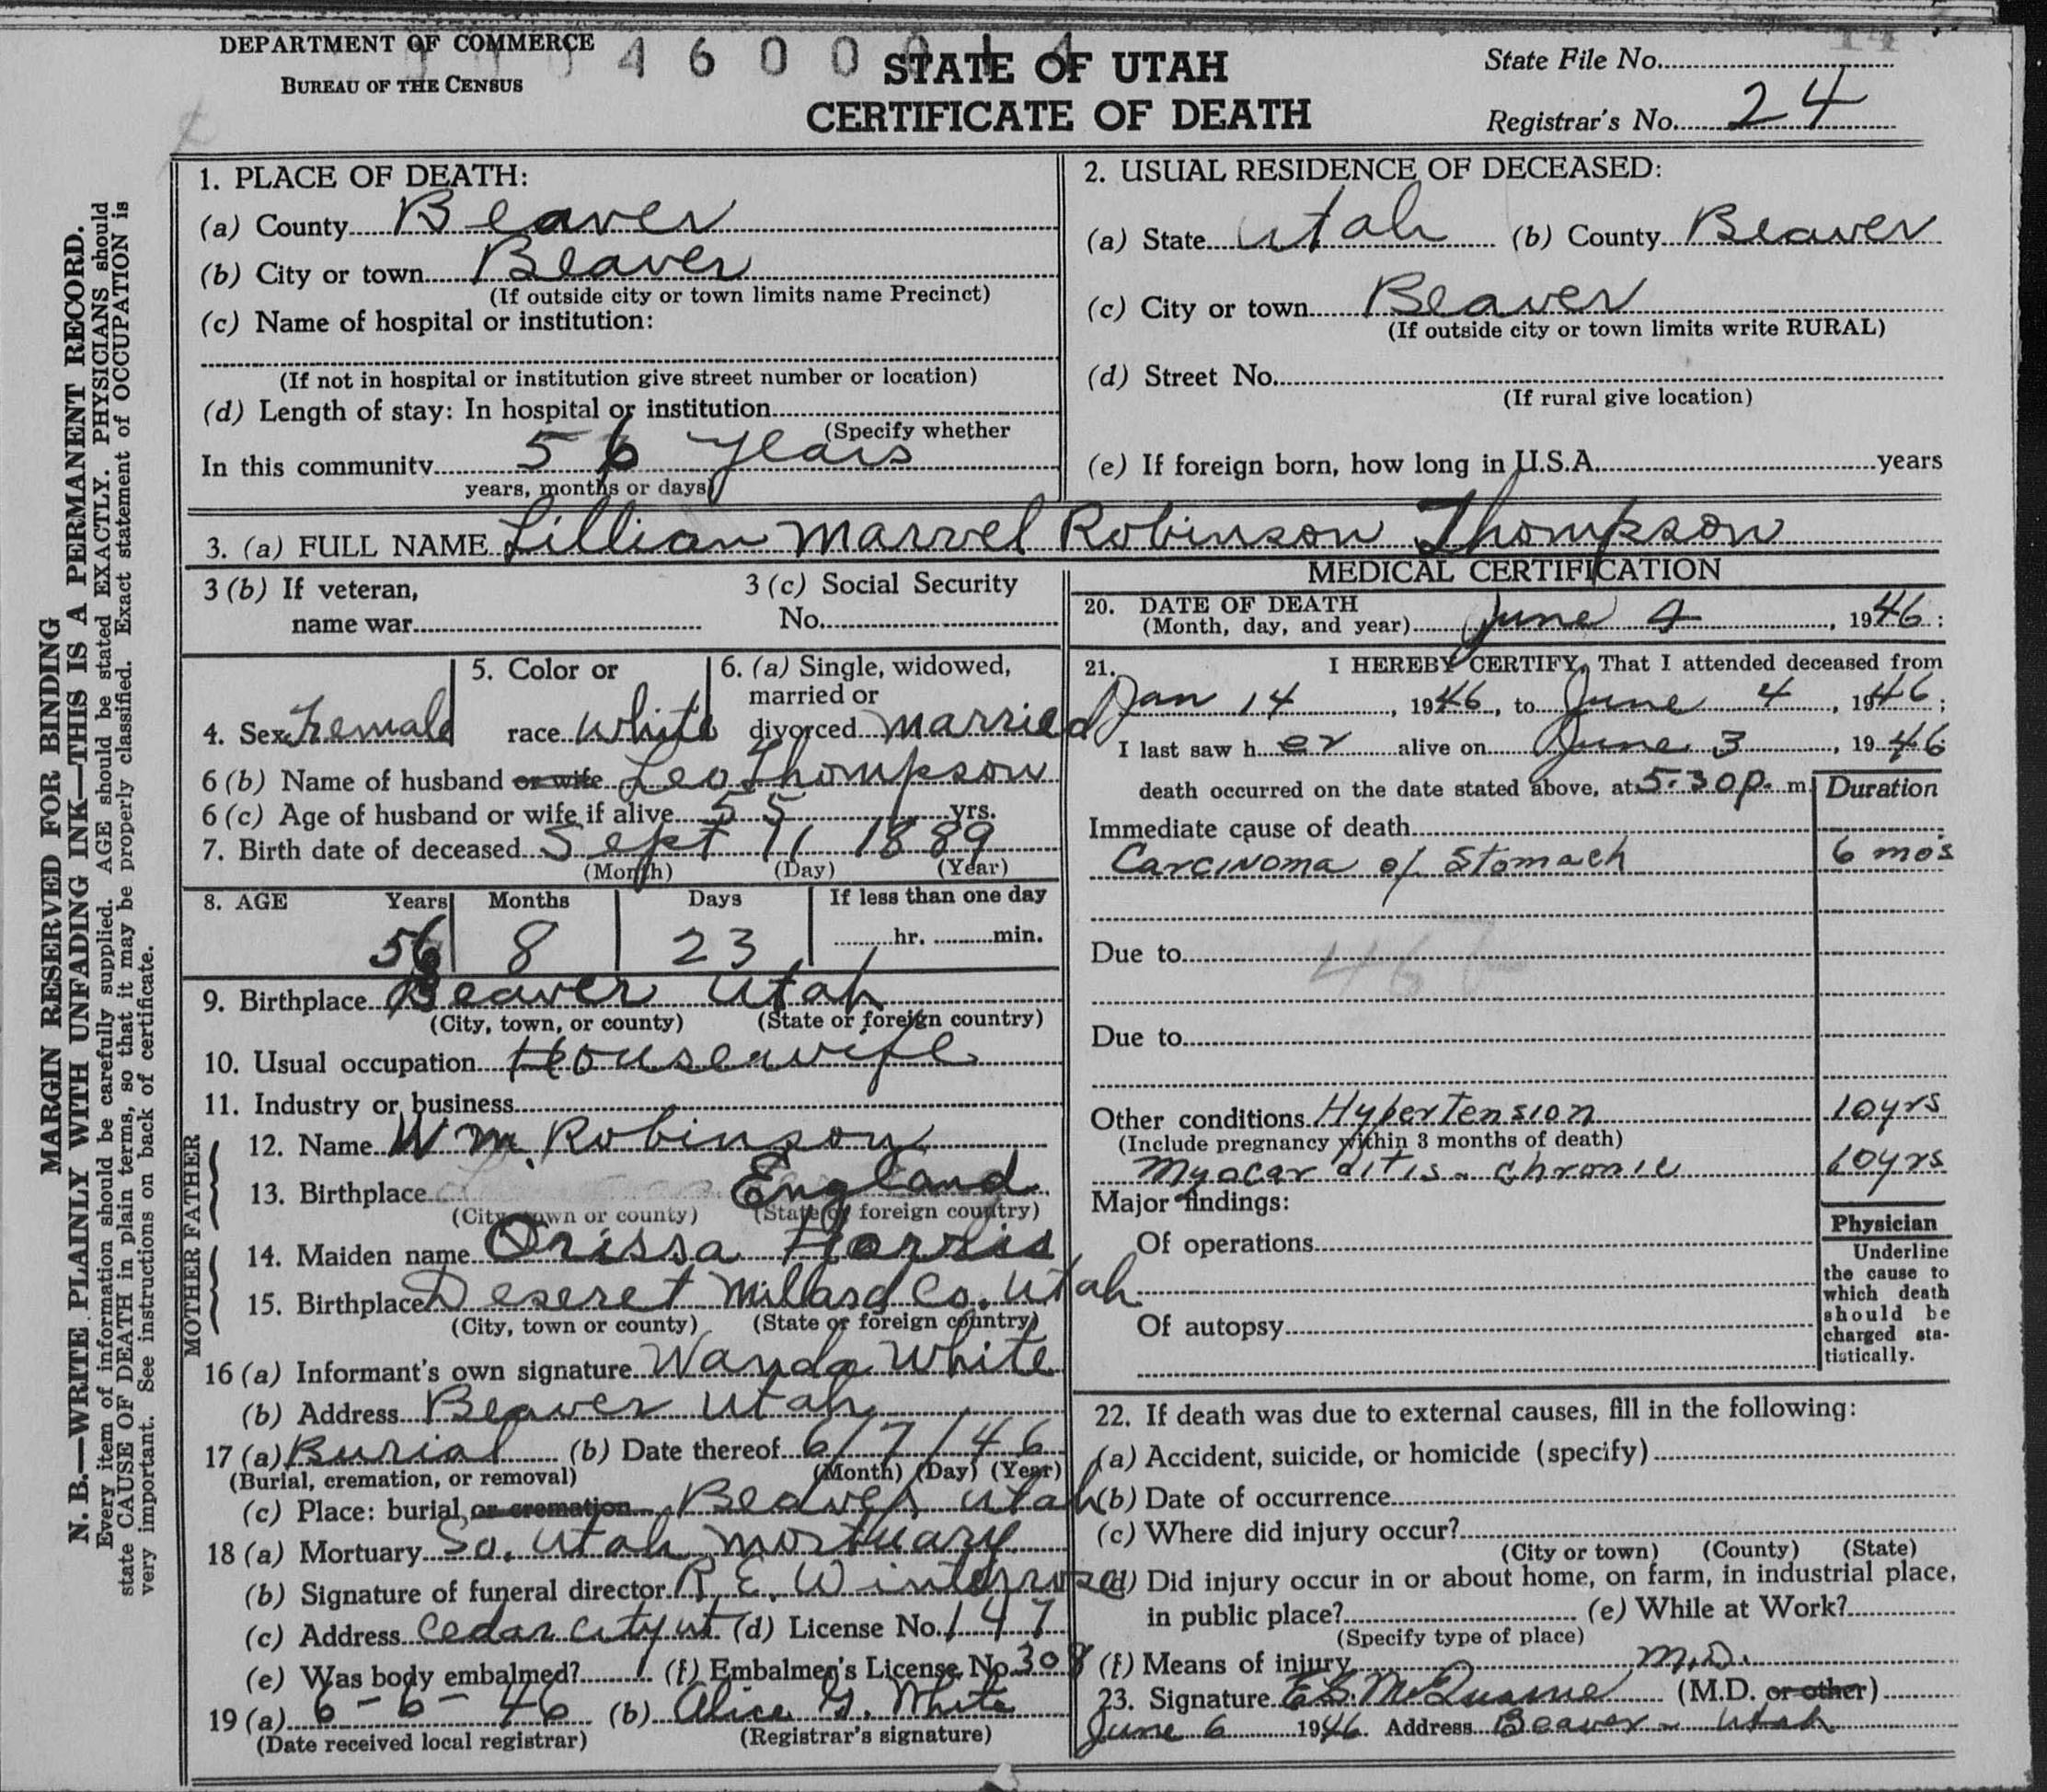 DEPARTMENT OF COMMERCE
BUREAU OF THE CENSUS
STATE OF UTAH
CERTIFICATE OF DEATH
State File No.
Registrar's No. 24
MARGIN RESERVED FOR BINDING
N. B.—WRITE PLAINLY WITH UNFADING INK—THIS IS A PERMANENT RECORD.
Every item of information should be carefully supplied. AGE should be stated EXACTLY. PHYSICIANS should
state CAUSE OF DEATH in plain terms, so that it may be properly classified. Exact statement of OCCUPATION is
very important. See instructions on back of certificate.
1. PLACE OF DEATH:
(a) County Beaver
(b) City or town Beaver
(If outside city or town limits name Precinct)
(c) Name of hospital or institution:
(If not in hospital or institution give street number or location)
(d) Length of stay: In hospital or institution
(Specify whether
In this community 56 years
years, months or days)
2. USUAL RESIDENCE OF DECEASED:
(a) State Utah (b) County Beaver
(c) City or town Beaver
(If outside city or town limits write RURAL)
(d) Street No.
(If rural give location)
(e) If foreign born, how long in U.S.A. years
3. (a) FULL NAME Lillian Marvel Robinson Thompson
3 (b) If veteran,
name war
3 (c) Social Security
No.
4. Sex Female
5. Color or
race White
6. (a) Single, widowed,
married or
divorced married
6 (b) Name of husband or wife Leo Thompson
6 (c) Age of husband or wife if alive 55 yrs.
7. Birth date of deceased Sept 11 1889
(Month) (Day) (Year)
8. AGE Years Months Days If less than one day
56 8 23 hr. min.
9. Birthplace Beaver Utah
(City, town, or county) (State or foreign country)
10. Usual occupation Housewife
11. Industry or business
FATHER
12. Name Wm. Robinson
13. Birthplace England
(City, town or county) (State or foreign country)
MOTHER
14. Maiden name Orissa Harris
15. Birthplace Deseret Millard Co. Utah
(City, town or county) (State or foreign country)
16 (a) Informant's own signature Wanda White
(b) Address Beaver Utah
17 (a) Burial (b) Date thereof 6/7/46
(Burial, cremation, or removal) (Month) (Day) (Year)
(c) Place: burial or cremation Beaver, Utah
18 (a) Mortuary So. Utah Mortuary
(b) Signature of funeral director R. E. Winterrose
(c) Address Cedar City Ut. (d) License No. 147
(e) Was body embalmed? (f) Embalmer's License No. 308
19 (a) 6-6-46 (b) Alice G. White
(Date received local registrar) (Registrar's signature)
MEDICAL CERTIFICATION
20. DATE OF DEATH
(Month, day, and year) June 4, 1946;
21. I HEREBY CERTIFY, That I attended deceased from
Jan 14, 1946, to June 4, 1946;
I last saw her alive on June 3, 1946
death occurred on the date stated above, at 5:30 p. m.
Duration
Immediate cause of death
Carcinoma of Stomach 6 mos
Due to
Due to
Other conditions Hypertension 10 yrs
(Include pregnancy within 3 months of death)
Myocarditis - chronic 10 yrs
Major findings:
Of operations
Of autopsy
Physician
Underline
the cause to
which death
should be
charged sta-
tistically.
22. If death was due to external causes, fill in the following:
(a) Accident, suicide, or homicide (specify)
(b) Date of occurrence
(c) Where did injury occur?
(City or town) (County) (State)
(d) Did injury occur in or about home, on farm, in industrial place,
in public place? (e) While at Work?
(Specify type of place)
(f) Means of injury M.D.
23. Signature (M.D. or other)
June 6 1946. Address Beaver - Utah